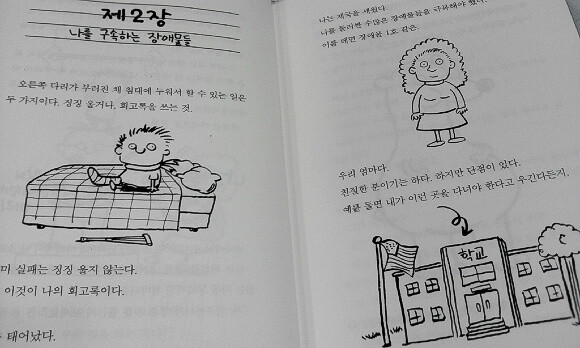 제2장
나를 구속하는 장애물들
오른쪽 다리가 부러진 채 침대에 누워서 할 수 있는 일은
두 가지이다. 징징 울거나, 회고록을 쓰는 것.
미 실패는 징징 울지 않는다.
이것이 나의 회고록이다.
태어났다.
나는 제국을 세웠다.
나를 둘러싼 수많은 장애물들을 극복해야 했다.
이를 테면 장애물 1호 같은.
우리 엄마다.
친절한 분이기는 하다. 하지만 단점이 있다.
예를 들면 내가 이런 곳을 다녀야 한다고 우긴다든지.
학교